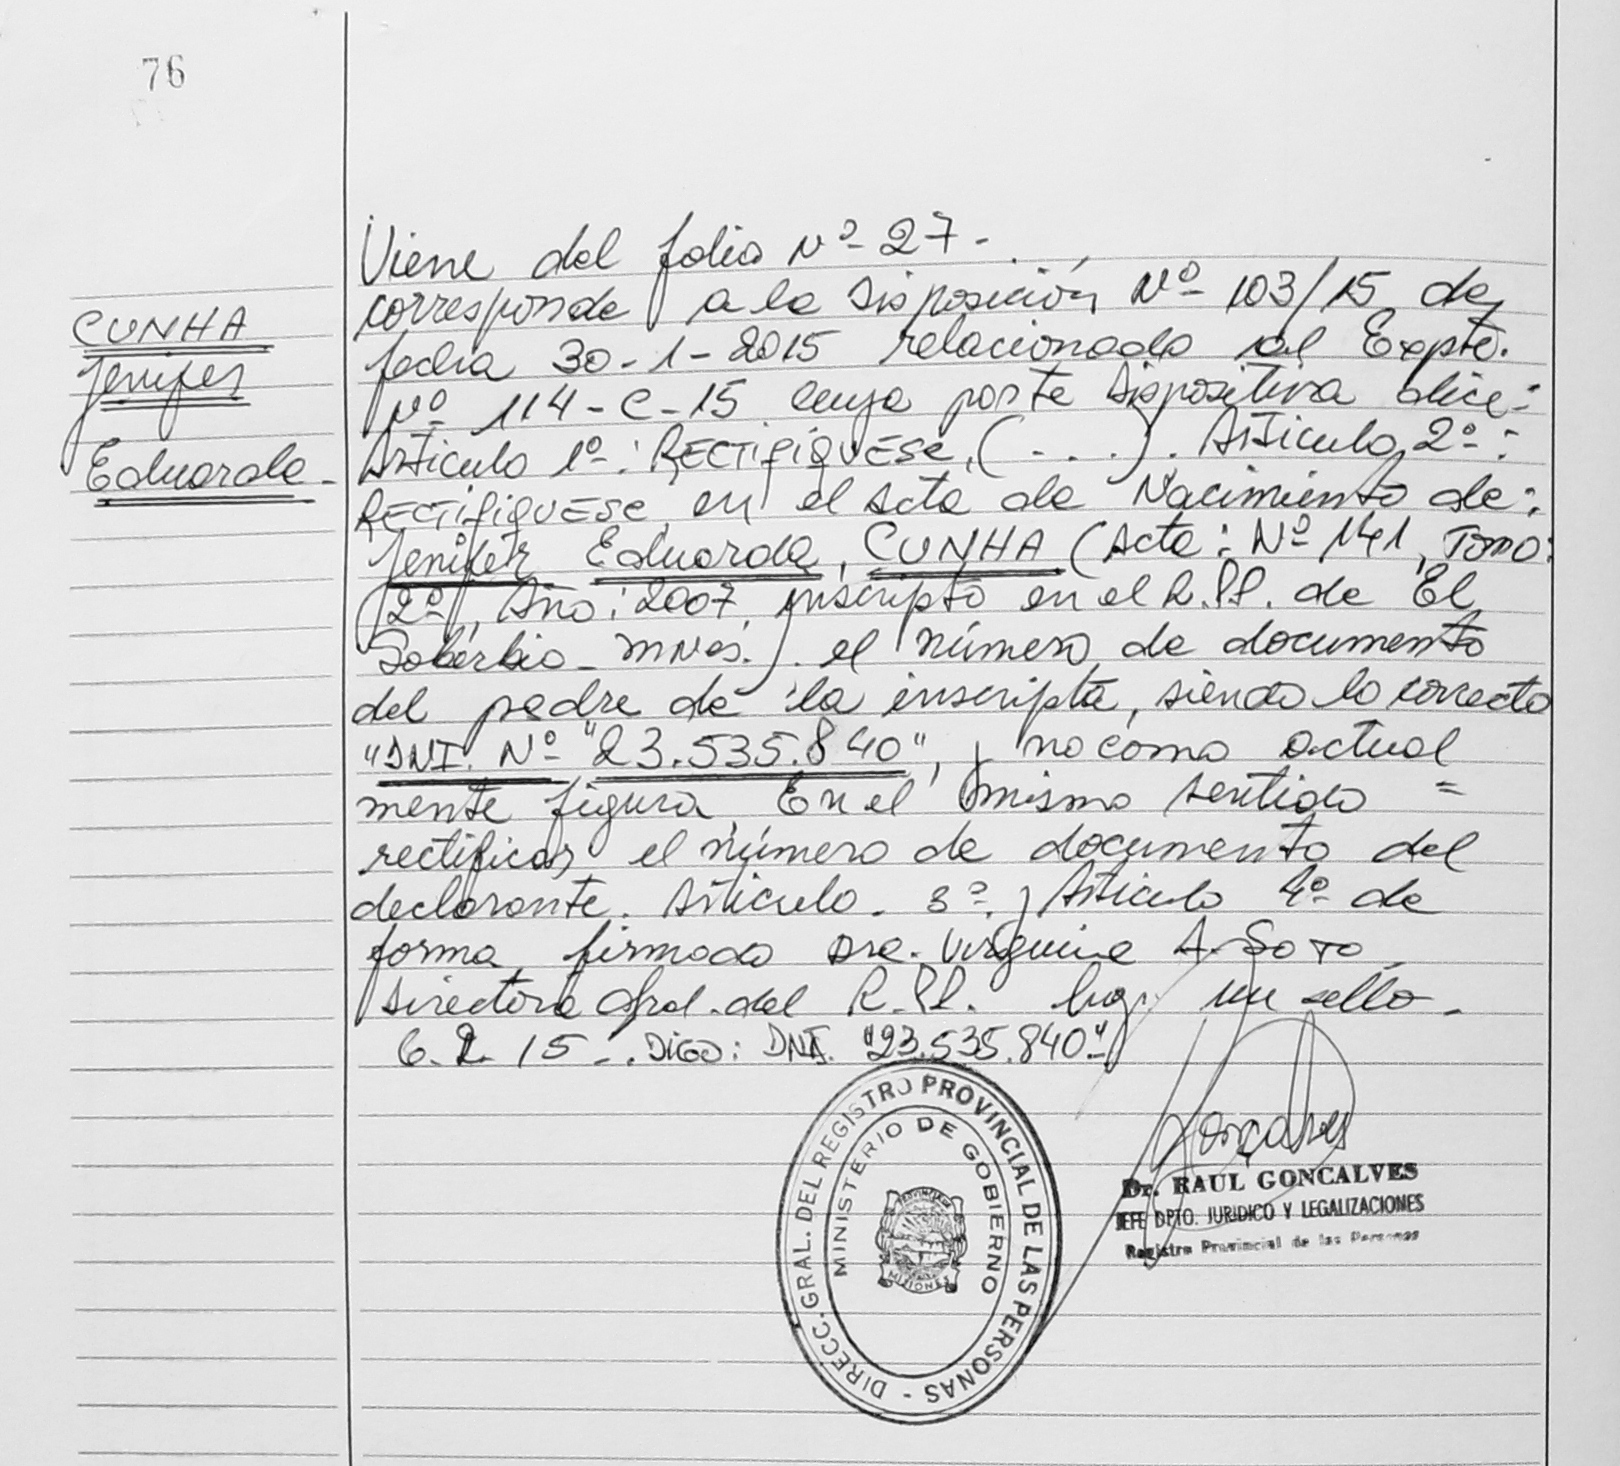 76
CUNHA
Jenifer
Eduarda -
Viene del folio Nº 27 -
corresponde a la Disposición Nº 103/15 de
fecha 30-1-2015 relacionado al Expte.
Nº 114-C-15 cuya parte dispositiva dice:
Articulo 1º: RECTIFIQUESE, (...). Articulo 2º:
RECTIFIQUESE en el Acta de Nacimiento de:
Jenifer Eduarda CUNHA (Acta: Nº 141, Tomo:
2º, Año: 2007, inscripta en el R.PP. de El
Soberbio - Mnes.). el número de documento
del padre de la inscripta, siendo lo correcto
"DNI. Nº "23.535.840", y no como actual
mente figura. En el mismo sentido =
rectificar el número de documento del
declarante. Articulo. 3º y Articulo 4º de
forma firmado Dra. Virginia A. Soto
Directora Gral. del R.PP. hay un sello -
6.2.15 -. Digo: DNI. "23.535.840"-
DIRECC. GRAL. DEL REGISTRO PROVINCIAL DE LAS PERSONAS -
MINISTERIO DE GOBIERNO
PROVINCIA DE
MISIONES
Gonçalves
Dr. RAUL GONCALVES
JEFE DPTO. JURIDICO Y LEGALIZACIONES
Registro Provincial de las Personas